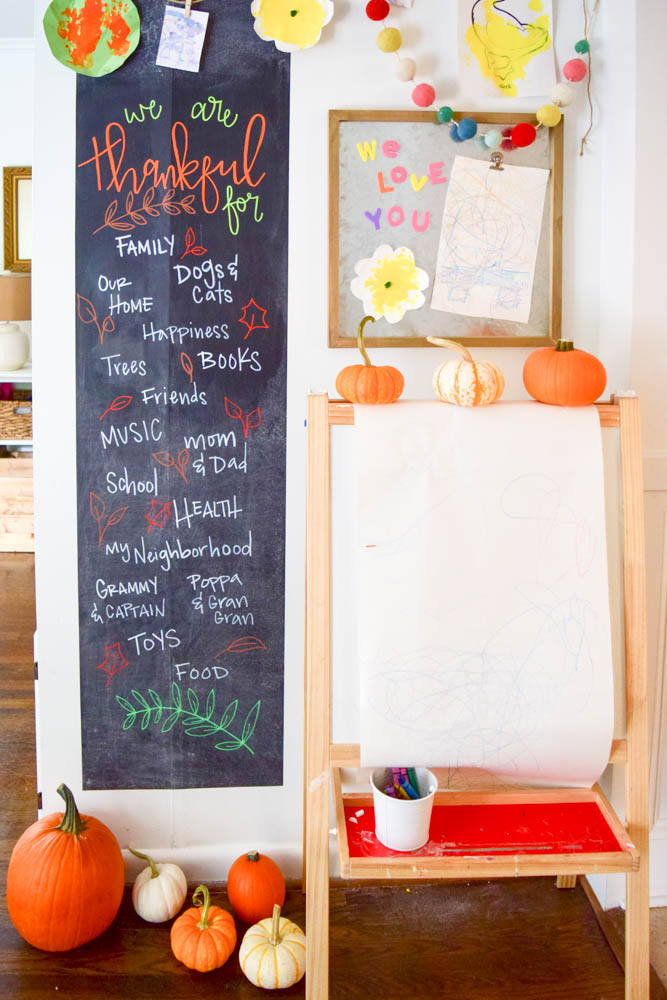 we are
thankful
for
FAMILY
OUR
HOME
DOGS &
CATS
Happiness
Trees
BOOKS
Friends
MUSIC
mom
& DAD
School
HEALTH
my Neighborhood
GRAMMY
& CAPTAIN
POPPA
& GRAN
GRAN
TOYS
FOOD
We
LOVe
YOU